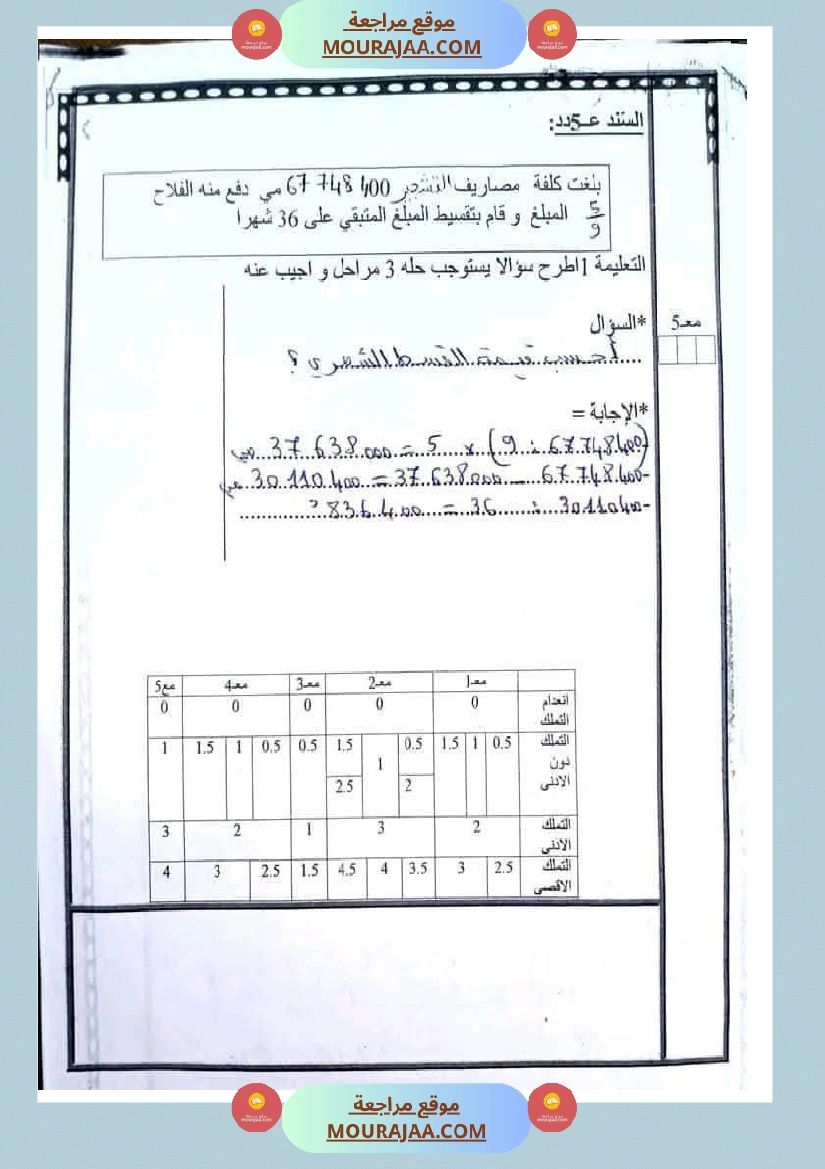 موقع مراجعة
MOURAJAA.COM
السند عـ5ـدد:
بلغت كلفة مصاريف التشجير 67 748 400 مي دفع منه الفلاح
5/9 المبلغ و قام بتقسيط المبلغ المتبقي على 36 شهرا
التعليمة 1 اطرح سؤالا يستوجب حله 3 مراحل و اجيب عنه
معـ5
*السؤال
....أحسب قيمة القسط الشهري ؟
*الإجابة =
(67.748.400 : 9) x 5 = 37.638.000 مي
-67.748.400 – 37.638.000 = 30.110.400 مي
-30.110.400 : 36 = 836.400
معـ1 معـ2 معـ3 معـ4 مع5
انعدام التملك 0 0 0 0 0
التملك دون الادنى 0.5 1 1.5 0.5 1 1.5 0.5 0.5 1 1.5 1
2 2.5
التملك الادنى 2 3 1 2 3
التملك الاقصى 2.5 3 3.5 4 4.5 1.5 2.5 3 4
موقع مراجعة
MOURAJAA.COM